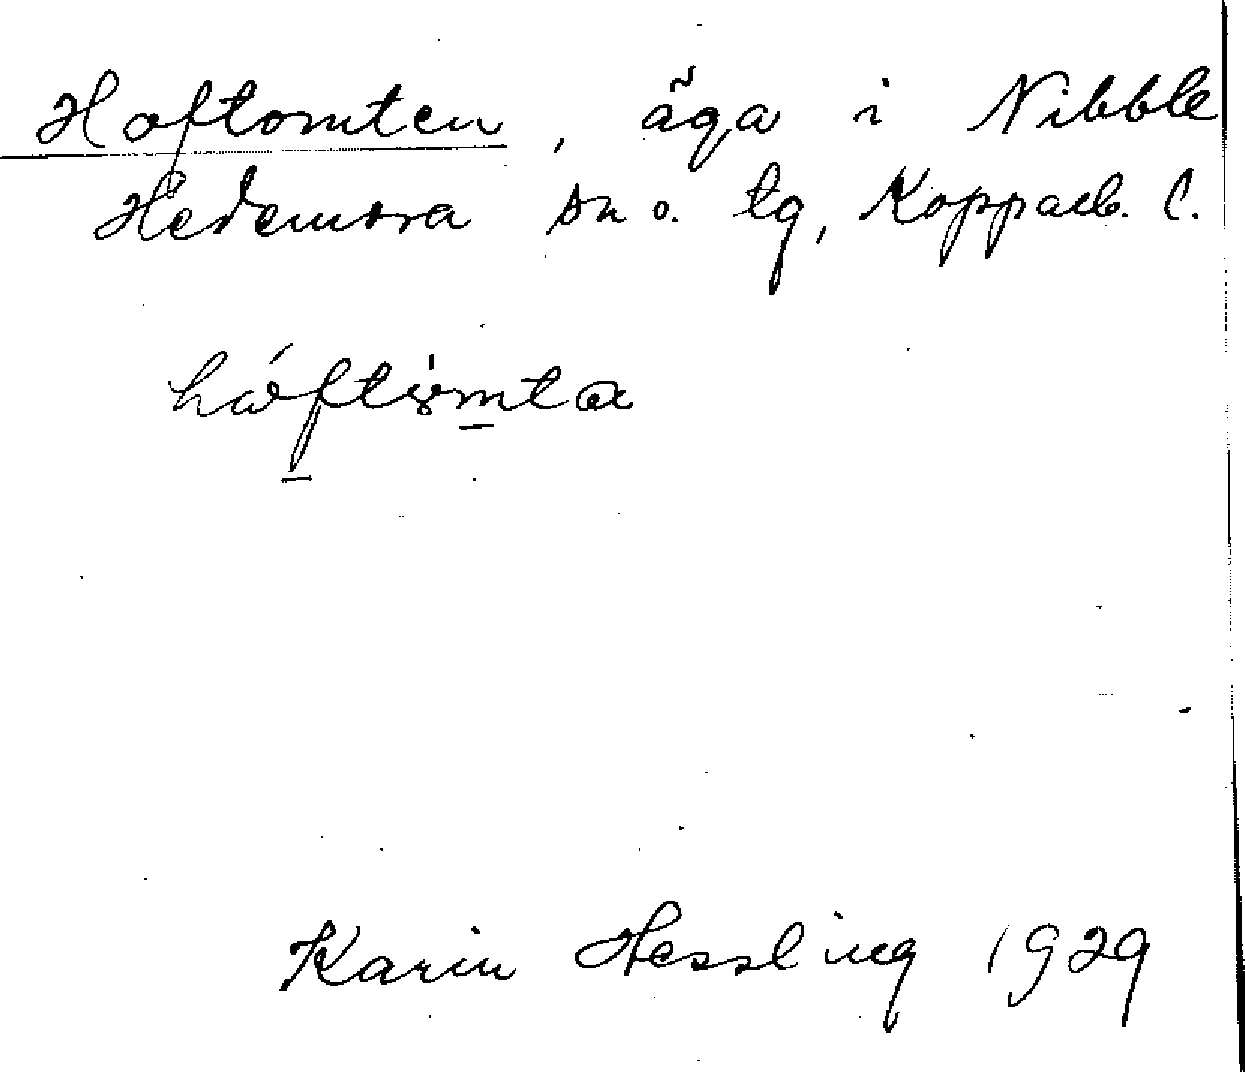 Haftomten, äga i Nibble
Hedemora sn o. tg, Kopparb. l.
Karin Hessling 1929